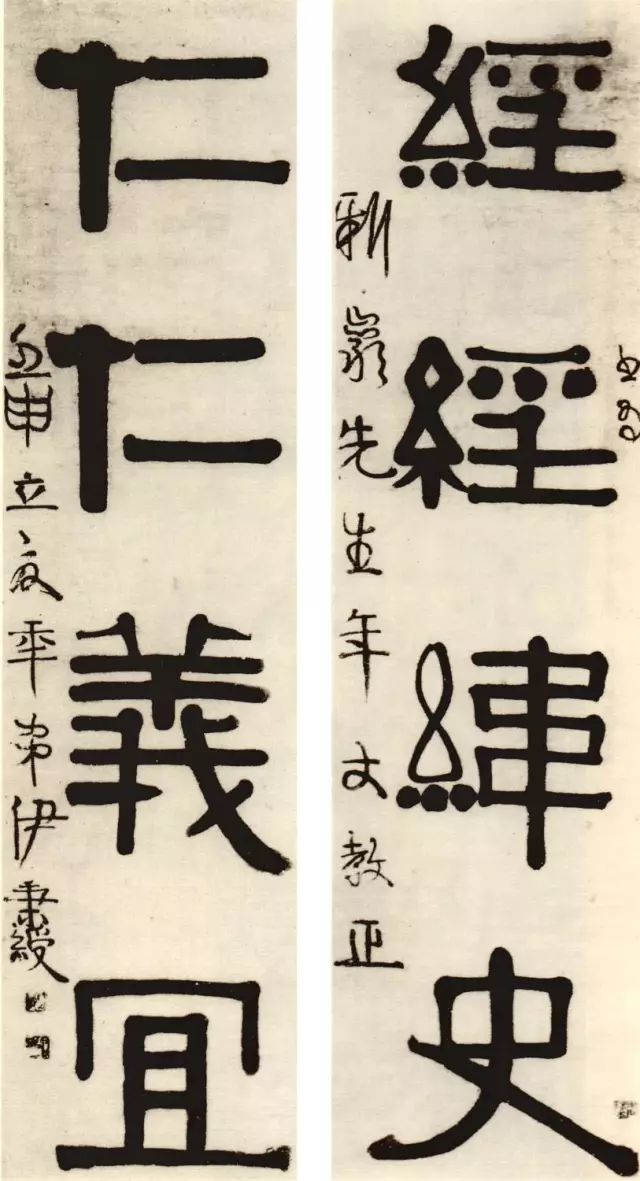 經經緯史
先生年丈教正
仁仁義宜
壬申立夏年弟伊秉綬